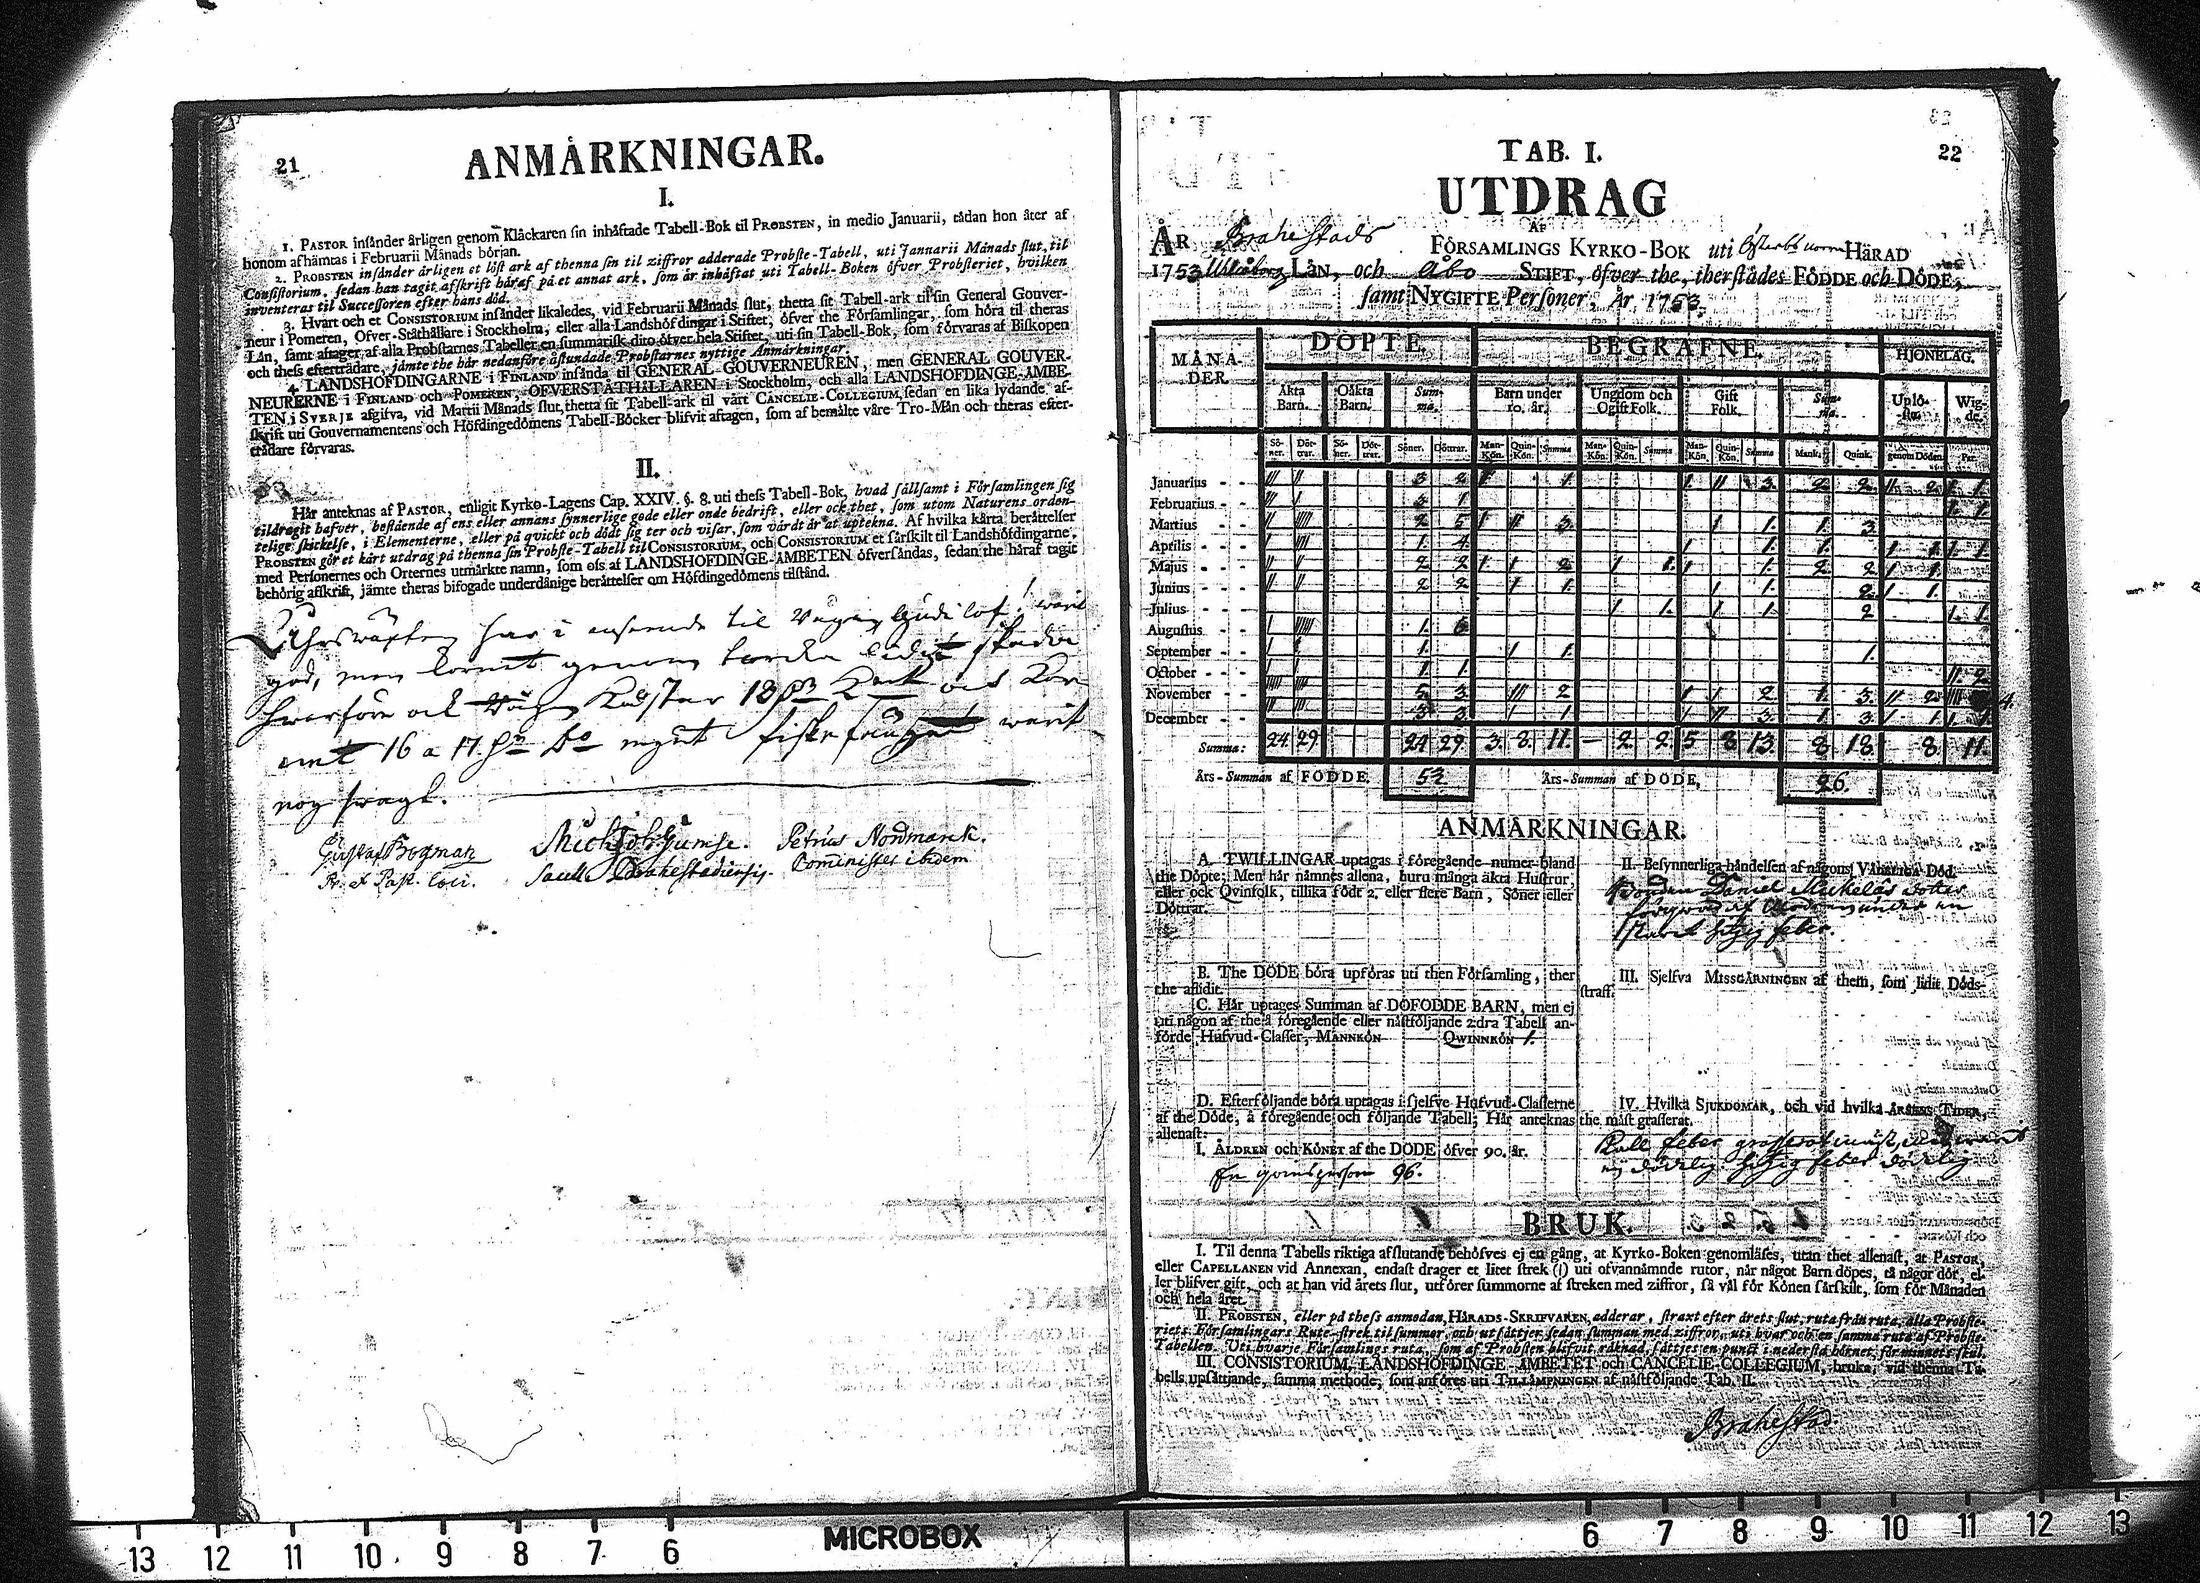 21
ANMÅRKNINGAR.
I.
1. PASTOR insånder årligen genom Klåckaren sin inhåftade Tabell-Bok til PROBSTEN, in medio Januarii, tådan hon åter af
honom afhåmtas i Februarii Månads början.
2. PROBSTEN insånder årligen et löst ark af thenna sin til ziffror adderade Probste-Tabell, uti Jannarii Månads slut, til
Consistorium, sedan han tagit afskrift håraf på et annat ark, som år inhåftat uti Tabell-Boken öfver Probsteriet, hvilken
inventeras til Successoren efter hans död.
3. Hvart och et CONSISTORIUM insånder likaledes, vid Februarii Månads slut, thetta sit Tabell-ark til sin General Gouver-
neur i Pomeren, Ofver-Ståthållare i Stockholm, eller alla Landshöfdingar i Stiftet, öfver the Församlingar, som höra til theras
Lån, samt aftager af alla Probstarnes Tabeller en summarisk dito öfver hela Stiftet, uti sin Tabell-Bok, som förvaras af Biskopen
och thess efterträdare, jämte the hår nedanföre åstundade Probstarnes nyttige Anmårkningar.
4. LANDSHÖFDINGARNE i FINLAND insånda til GENERAL-GOUVERNEUREN, men GENERAL GOUVER-
NEURERNE i FINLAND och POMEREN, ÖFVERSTÅTHÅLLAREN i Stockholm, och alla LANDSHÖFDINGE-ÅMBE-
TEN i SVERJE afgifva, vid Martii Månads slut, thetta sit Tabell-ark til vårt CANCELIE-COLLEGIUM, sedan en lika lydande af-
skrift uti Gouvernamentens och Höfdingedömens Tabell-Böcker blifvit aftagen, som af bemålte våre Tro-Mån och theras efter-
trådare förvaras.
II.
Hår anteknas af PASTOR, enligit Kyrko-Lagens Cap. XXIV. §. 8. uti thess Tabell-Bok, hvad sållsamt i Församlingen sig
tildragit hafver, bestående af ens eller annans synnerlige gode eller onde bedrift, eller ock thet, som utom Naturens orden-
telige skickelse, i Elementerne, eller på qvickt och dödt sig ter och visar, som vårdt år at uptekna. Af hvilka kårta beråttelser
PROBSTEN gör et kårt utdrag på thenna sin Probste-Tabell til CONSISTORIUM, och CONSISTORIUM et sårskilt til Landshöfdingarne,
med Personernes och Orternes utmårkte namn, som oss af LANDSHÖFDINGE-ÅMBETEN öfversåndas, sedan the håraf tagit
behörig afskrift, jåmte theras bifogade underdånige beråttelser om Höfdingedömens tilstånd.
god, men kornet genom torka lidit skada
16 a 17
nog swagt.
Gustaf Bogman Petrus Nordmarck.
Pr. et Past. Loci. Brahestadiensis. Cominister ibidem
22
TAB. I.
UTDRAG
AF
ÅR Brahestads FÖRSAMLINGS KYRKO-BOK uti HÅRAD
1753 LÅN, och Åbo STIFT, öfver the, therstådes FÖDDE och DÖDE,
samt NYGIFTE Personer, År 1753.
MÅNA-DER. DÖPTE. BEGRAFNE. HJONELAG.
Åkta Barn. Oåkta Barn. Summa. Barn under 10. år. Ungdom och Ogift Folk. Gift Folk. Summa. Uplö-sta. Wig-de.
Sö-ner. Döt-trar. Sö-ner. Döt-trar. Söner. Döttrar. Man-Kön. Quin-Kön. Summa Man-Kön. Quin-Kön. Summa Man-Kön. Quin-Kön. Summa Mank. Quink. genom Döden. Par.
Januarius - - 3 2 1. 3. 2. 2. 2. 1.
Februarius - - 3 1 1.
Martius - - 2 5 3. 1. 1. 3.
Aprilis - - 1. 4. 1. 1. 1. 1.
Majus - - 2 2 2 1. 1. 2 2 1.
Junius - - 2 2 1. 1. 2. 1.
Julius - - 1. 1. 2 1.
Augustus - - 1. 6
September - - 1. 1. 1.
October - - 1 1. 2.
November - - 5 3. 2 2. 1. 3. 2. 4.
December - - 3 3. 1. 3. 1. 3. 1. 1.
Summa: 24. 29. 24 29. 3. 8. 11. - 2. 2. 5 8 13. 8 18. 8. 11.
Års-Summan af FÖDDE. 53 Års-Summan af DÖDE, 26.
ANMÅRKNINGAR.
A. TWILLINGAR uptagas i föregående numer bland
the Döpte; Men hår nåmnes allena, huru många åkta Hustrur,
eller ock Qvinfolk, tillika födt 2. eller flere Barn, Söner eller
Döttrar.
B. The DÖDE böra upföras uti then Församling, ther
the aflidit.
C. Hår uptages Summan af DÖFÖDDE BARN, men ej
uti någon af the å föregående eller nåstföljande 2:dra Tabell an-
förde Hufvud-Classer, MANNKÖN QWINNKÖN 1.
D. Efterföljande böra uptagas i sjelfve Hufvud-Classerne
af the Döde, å föregående och följande Tabell; Hår anteknas
allenast:
I. ÅLDREN och KÖNET af the DÖDE öfver 90. år.
En qvinsperson 96.
II. Besynnerliga håndelsen af någons VÅDELIGA Död.
Bonden Daniel Mickelss dotter
hetzig feber.
III. Sjelfva MISSGÅRNINGEN af them, som lidit Döds-
straff.
IV. Hvilka SJUKDOMAR, och vid hvilka ÅRSENS TIDER,
the måst grasserat.
Kall feber grasserat
ej dödelig. hetzig feber dödelig
BRUK.
I. Til denna Tabells riktiga afslutande behöfves ej en gång, at Kyrko-Boken genomlåses, utan thet allenast, at PASTOR,
eller CAPELLANEN vid Annexan, endast drager et litet strek (|) uti ofvannåmnde rutor, når något Barn döpes, tå någor dör, el-
ler blifver gift, och at han vid årets slut, utförer summorne af streken med ziffror, så vål för Könen sårskilt, som för Månaden
och hela året.
II. PROBSTEN, eller på thess anmodan, HÅRADS-SKRIFVAREN, adderar, straxt efter årets slut, ruta från ruta, alla Probste-
riets Församlingars Rute-strek til summor, och utsåttjer sedan summan med ziffror, uti hvar och en samma ruta af Probste-
Tabellen. Uti hvarje Församlings ruta, som af Probsten blifvit råknad, såttjes en punct i nedersta hörnet, för minnets skul.
III. CONSISTORIUM, LANDSHÖFDINGE-ÅMBETET och CANCELIE-COLLEGIUM, bruka, vid thenna Ta-
bells upsåttjande, samma methode, som anföres uti TILLÅMPNINGEN af nåstföljande Tab. II.
Brahestad.
13 12 11 10 9 8 7 6 MICROBOX 6 7 8 9 10 11 12 13